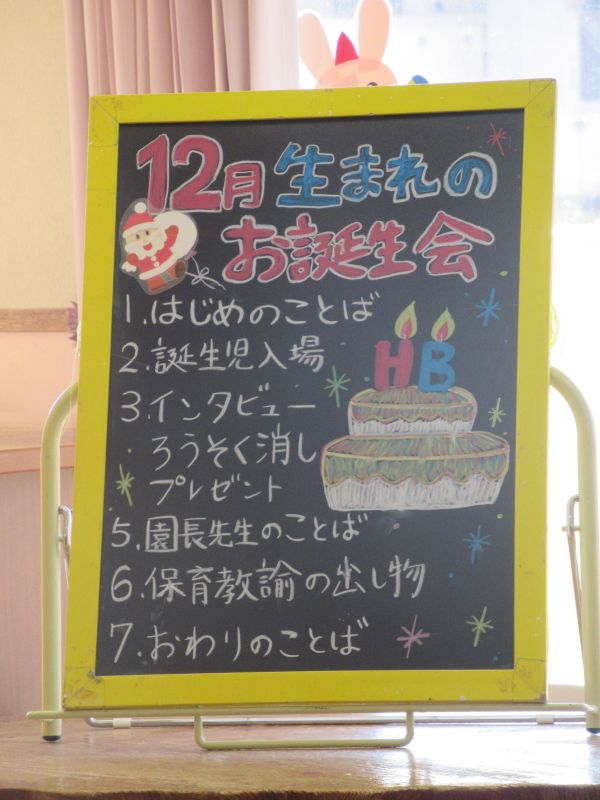 12月生まれの
お誕生会
1.はじめのことば
2.誕生児入場
3.インタビュー
ろうそく消し
プレゼント
HB
5.園長先生のことば
6.保育教諭の出し物
7.おわりのことば